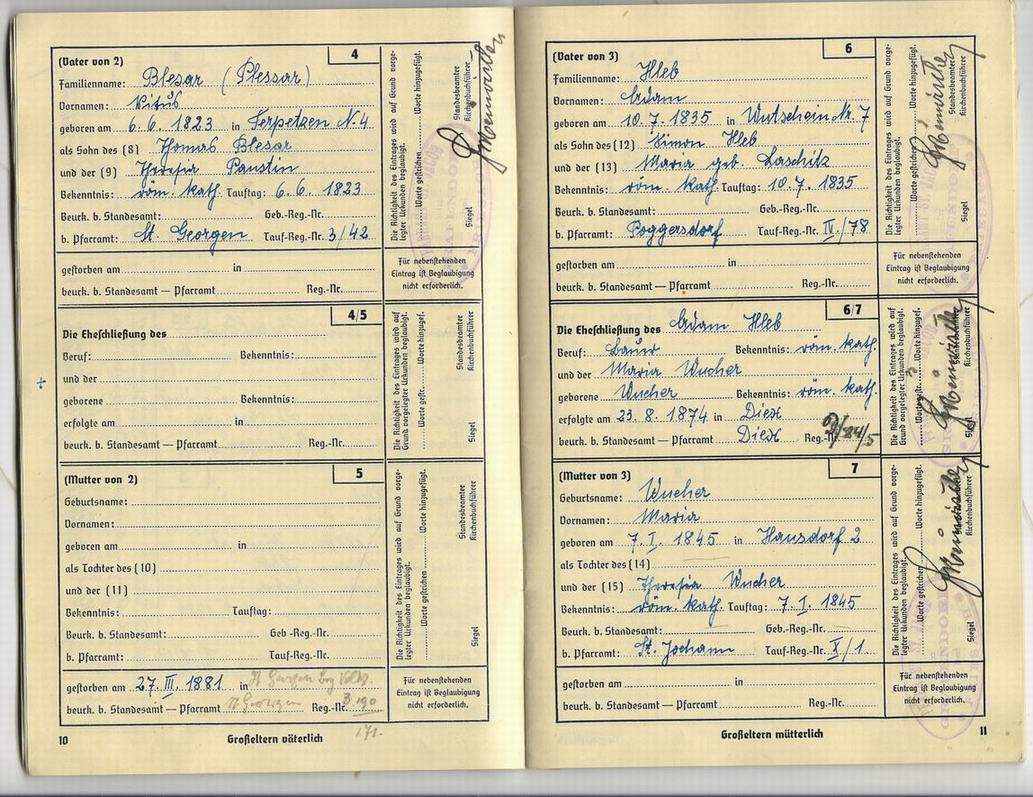 (Vater von 2) 4
Familienname: Blesar (Plessar)
Vornamen: Vitus
geboren am 6.6.1823 in Terpetzen N.4
als Sohn des (8) Thomas Blesar
und der (9) Theresia Paustin
Bekenntnis: röm. kath. Tauftag: 6.6.1823
Beurk. b. Standesamt: Geb.-Reg.-Nr.
b. Pfarramt: St. Georgen Tauf-Reg.-Nr. 3/42
Die Richtigkeit des Eintrages wird auf Grund vorge-
legter Urkunden beglaubigt.
Worte gestrichen Worte hinzugefügt.
Siegel
Standesbeamter
Kirchenbuchführer
gestorben am in
beurk. b. Standesamt — Pfarramt Reg.-Nr.
Für nebenstehenden
Eintrag ist Beglaubigung
nicht erforderlich.
4/5
Die Eheschließung des
Beruf: Bekenntnis:
und der
geborene Bekenntnis:
erfolgte am in
beurk. b. Standesamt — Pfarramt Reg.-Nr.
Die Richtigkeit des Eintrages wird auf
Grund vorgelegter Urkunden beglaubigt.
Worte gestr. Worte hinzugef.
Siegel
Standesbeamter
Kirchenbuchführer
(Mutter von 2) 5
Geburtsname:
Vornamen:
geboren am in
als Tochter des (10)
und der (11)
Bekenntnis: Tauftag:
Beurk. b. Standesamt: Geb.-Reg.-Nr.
b. Pfarramt: Tauf-Reg.-Nr.
Die Richtigkeit des Eintrages wird auf Grund vorge-
legter Urkunden beglaubigt.
Worte gestrichen Worte hinzugefügt.
Siegel
Standesbeamter
Kirchenbuchführer
gestorben am 27. III. 1881 in
beurk. b. Standesamt — Pfarramt St Georgen Reg.-Nr. 3
Für nebenstehenden
Eintrag ist Beglaubigung
nicht erforderlich.
10 Großeltern väterlich 171.
(Vater von 3) 6
Familienname: Hleb
Vornamen: Adam
geboren am 10.7.1835 in Wutschein Nr. 7
als Sohn des (12) Simon Hleb
und der (13) Maria geb. Laschitz
Bekenntnis: röm. kath. Tauftag: 10.7.1835
Beurk. b. Standesamt: Geb.-Reg.-Nr.
b. Pfarramt: Poggersdorf Tauf-Reg.-Nr. IV./78
Die Richtigkeit des Eintrages wird auf Grund vorge-
legter Urkunden beglaubigt.
Worte gestrichen Worte hinzugefügt.
Siegel
Standesbeamter
Kirchenbuchführer
gestorben am in
beurk. b. Standesamt — Pfarramt Reg.-Nr.
Für nebenstehenden
Eintrag ist Beglaubigung
nicht erforderlich.
6/7
Die Eheschließung des Adam Hleb
Beruf: Bauer Bekenntnis: röm. kath.
und der Maria Wucher
geborene Wucher Bekenntnis: röm. kath.
erfolgte am 23.8.1874 in Diex
beurk. b. Standesamt — Pfarramt Diex Reg.-Nr.
Die Richtigkeit des Eintrages wird auf
Grund vorgelegter Urkunden beglaubigt.
Worte gestr. Worte hinzugef.
Siegel
Standesbeamter
Kirchenbuchführer
(Mutter von 3) 7
Geburtsname: Wucher
Vornamen: Maria
geboren am 7. I. 1845 in Hausdorf 2
als Tochter des (14)
und der (15) Theresia Wucher
Bekenntnis: röm. kath. Tauftag: 7. I. 1845
Beurk. b. Standesamt: Geb.-Reg.-Nr.
b. Pfarramt: St. Johann Tauf-Reg.-Nr. X/1
Die Richtigkeit des Eintrages wird auf Grund vorge-
legter Urkunden beglaubigt.
Worte gestrichen Worte hinzugefügt.
Siegel
Standesbeamter
Kirchenbuchführer
gestorben am in
beurk. b. Standesamt — Pfarramt Reg.-Nr.
Für nebenstehenden
Eintrag ist Beglaubigung
nicht erforderlich.
Großeltern mütterlich 11